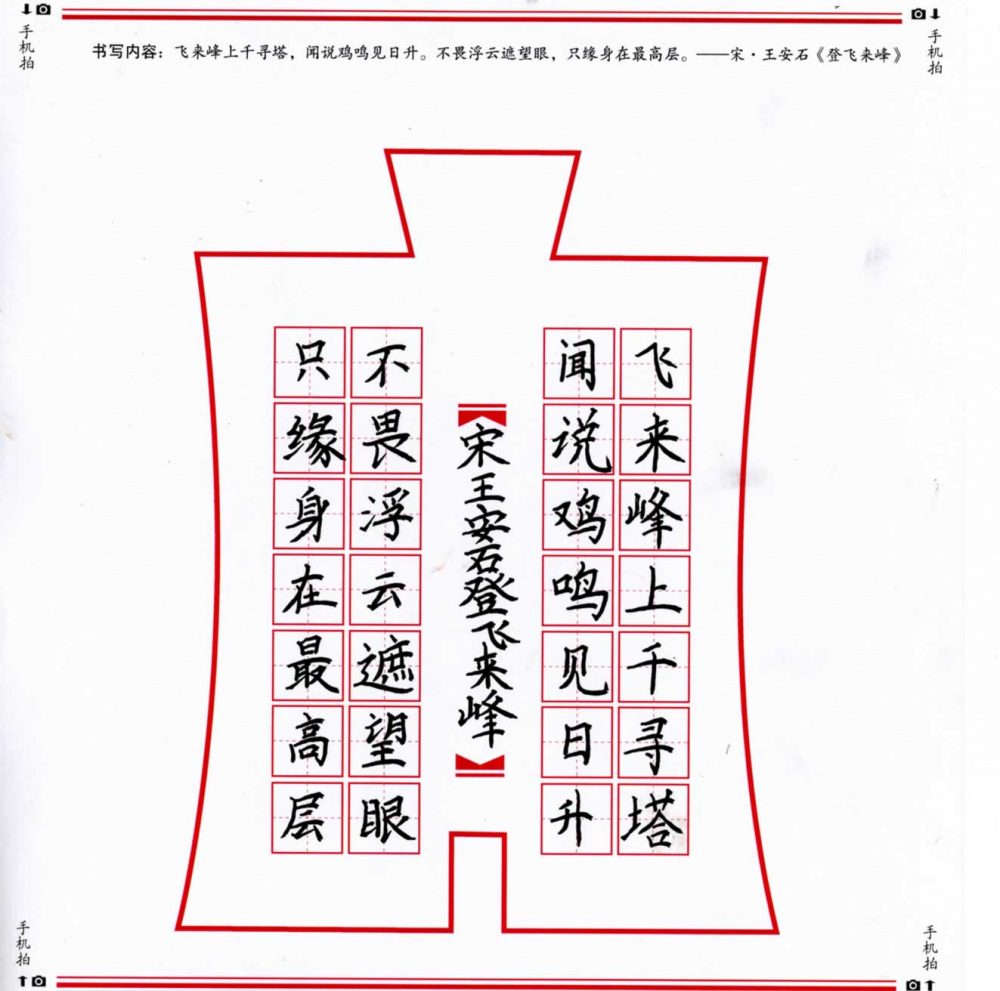 手机拍
手机拍
书写内容：飞来峰上千寻塔，闻说鸡鸣见日升。不畏浮云遮望眼，只缘身在最高层。——宋·王安石《登飞来峰》
飞来峰上千寻塔
闻说鸡鸣见日升
宋王安石登飞来峰
不畏浮云遮望眼
只缘身在最高层
手机拍
手机拍